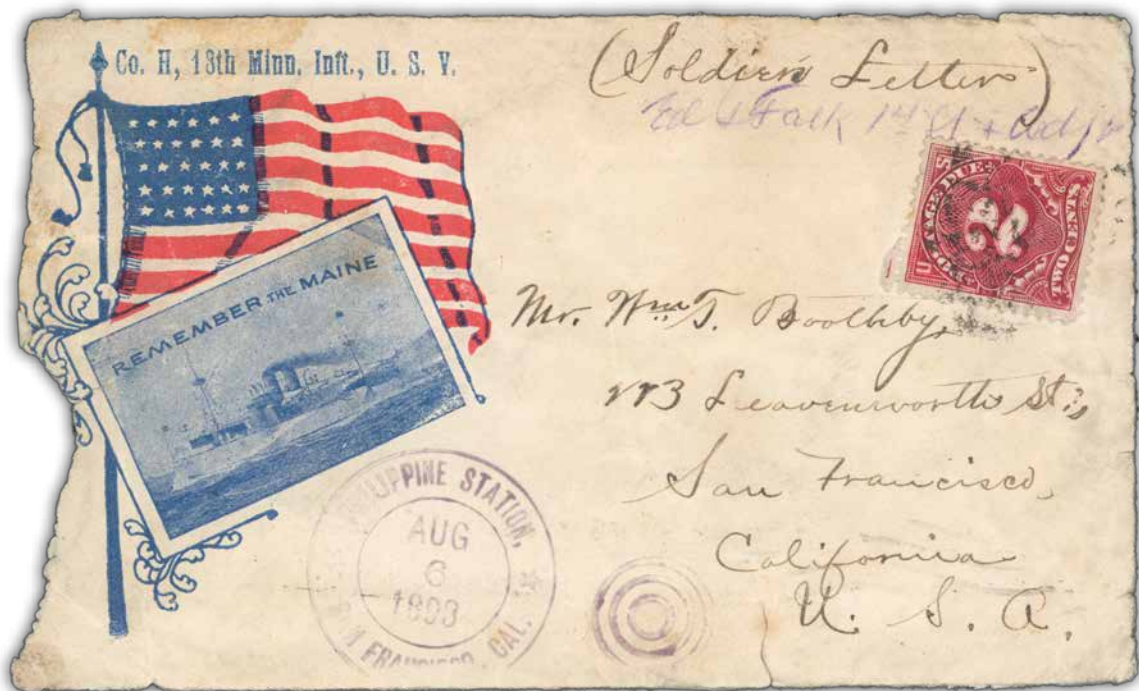 Co. H, 13th Minn. Inft., U. S. V.
(Soldiers Letter)
POSTAGE DUE
2
TWO CENTS
REMEMBER THE MAINE
Mr. Wm T. Boothby,
Leavenworth St.,
San Francisco,
California
U. S. A.
PHILIPPINE STATION,
AUG
6
1898
SAN FRANCISCO, CAL.